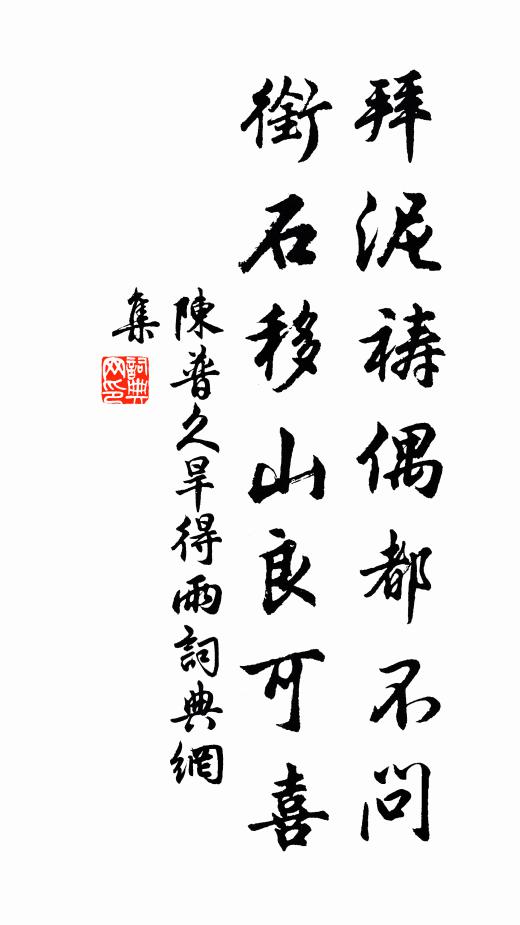 拜泥祷偶都不問
銜石移山良可喜
陳普久旱得雨詞典網
集
詞典
网印